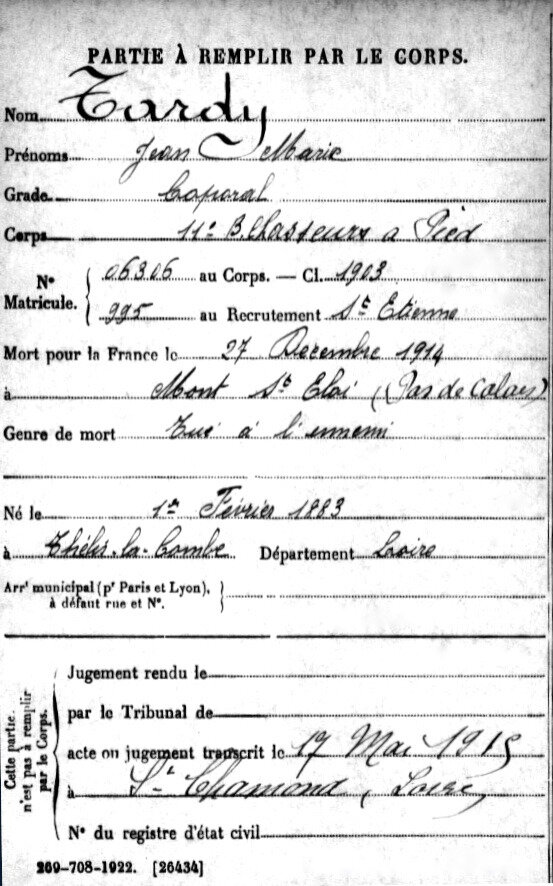 PARTIE À REMPLIR PAR LE CORPS.
Nom Tardy
Prénoms Jean Marie
Grade Caporal
Corps 11e B. Chasseurs à Pied
N° Matricule. 06306 au Corps. — Cl. 1903
995 au Recrutement St Etienne
Mort pour la France le 27 Décembre 1914
à Mont St Eloi (Pas de Calais)
Genre de mort Tué à l'ennemi
Né le 1er Février 1883
à Thélis-la-Combe Département Loire
Arrt municipal (pr Paris et Lyon), à défaut rue et N°.
Cette partie n'est pas à remplir par le Corps.
Jugement rendu le
par le Tribunal de
acte ou jugement transcrit le 17 Mai 1915
à St Chamond, Loire,
N° du registre d'état civil
269-708-1922. [26434]